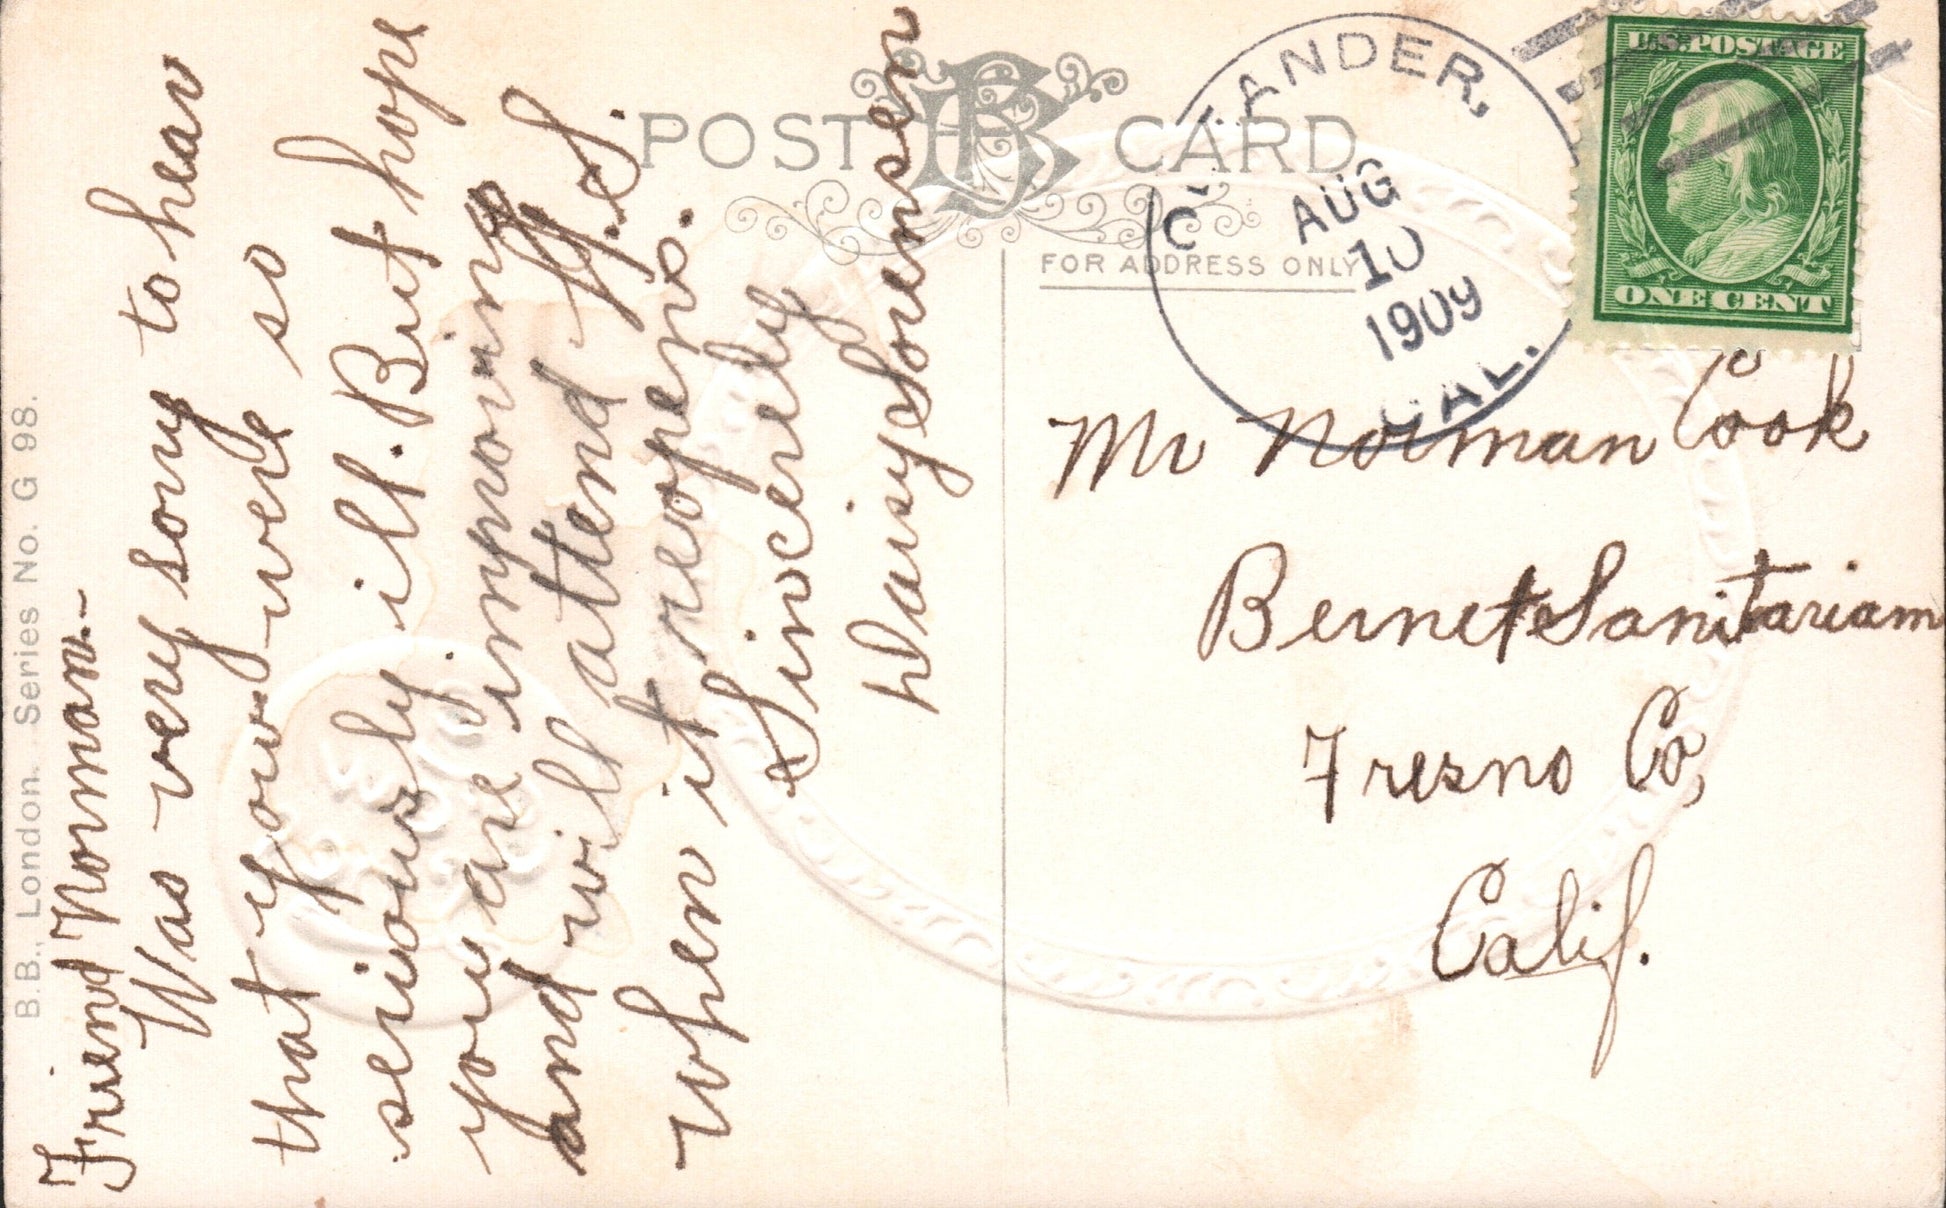 B.B., London. Series No. G 98.
Friend Norman.-
Was very sorry to hear
that you were so
seriously ill. But hope
you are improving
and will attend H.S.
when it reopens.
Sincerely
Daisy Sorensen
POST CARD
FOR ADDRESS ONLY
ANDER,
AUG
10
1909
CAL.
U.S. POSTAGE
ONE CENT
Mr Norman Cook
Bernett Sanitariam
Fresno Co,
Calif.